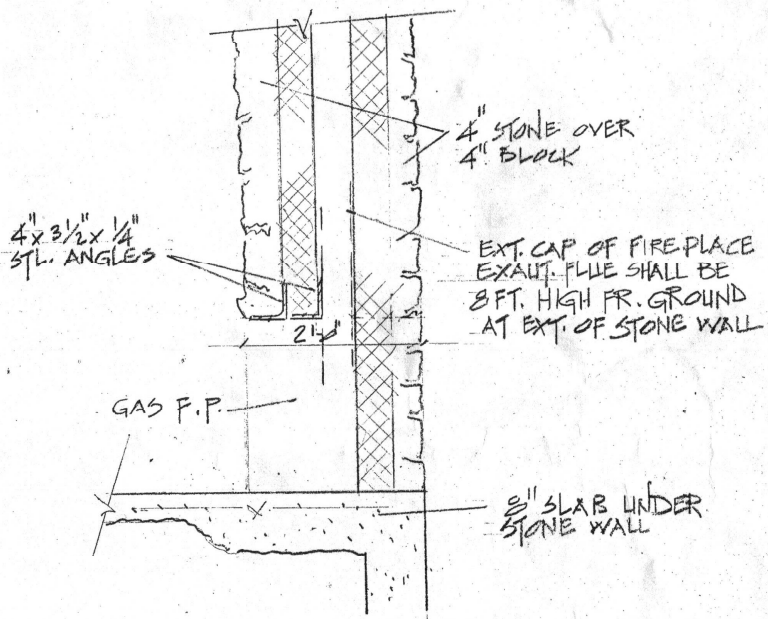 4" STONE OVER
4" BLOCK
4" x 3 1/2" x 1/4"
STL. ANGLES
EXT. CAP OF FIREPLACE
EXAUT. FLUE SHALL BE
8 FT. HIGH FR. GROUND
AT EXT. OF STONE WALL
GAS F.P.
8" SLAB UNDER
STONE WALL